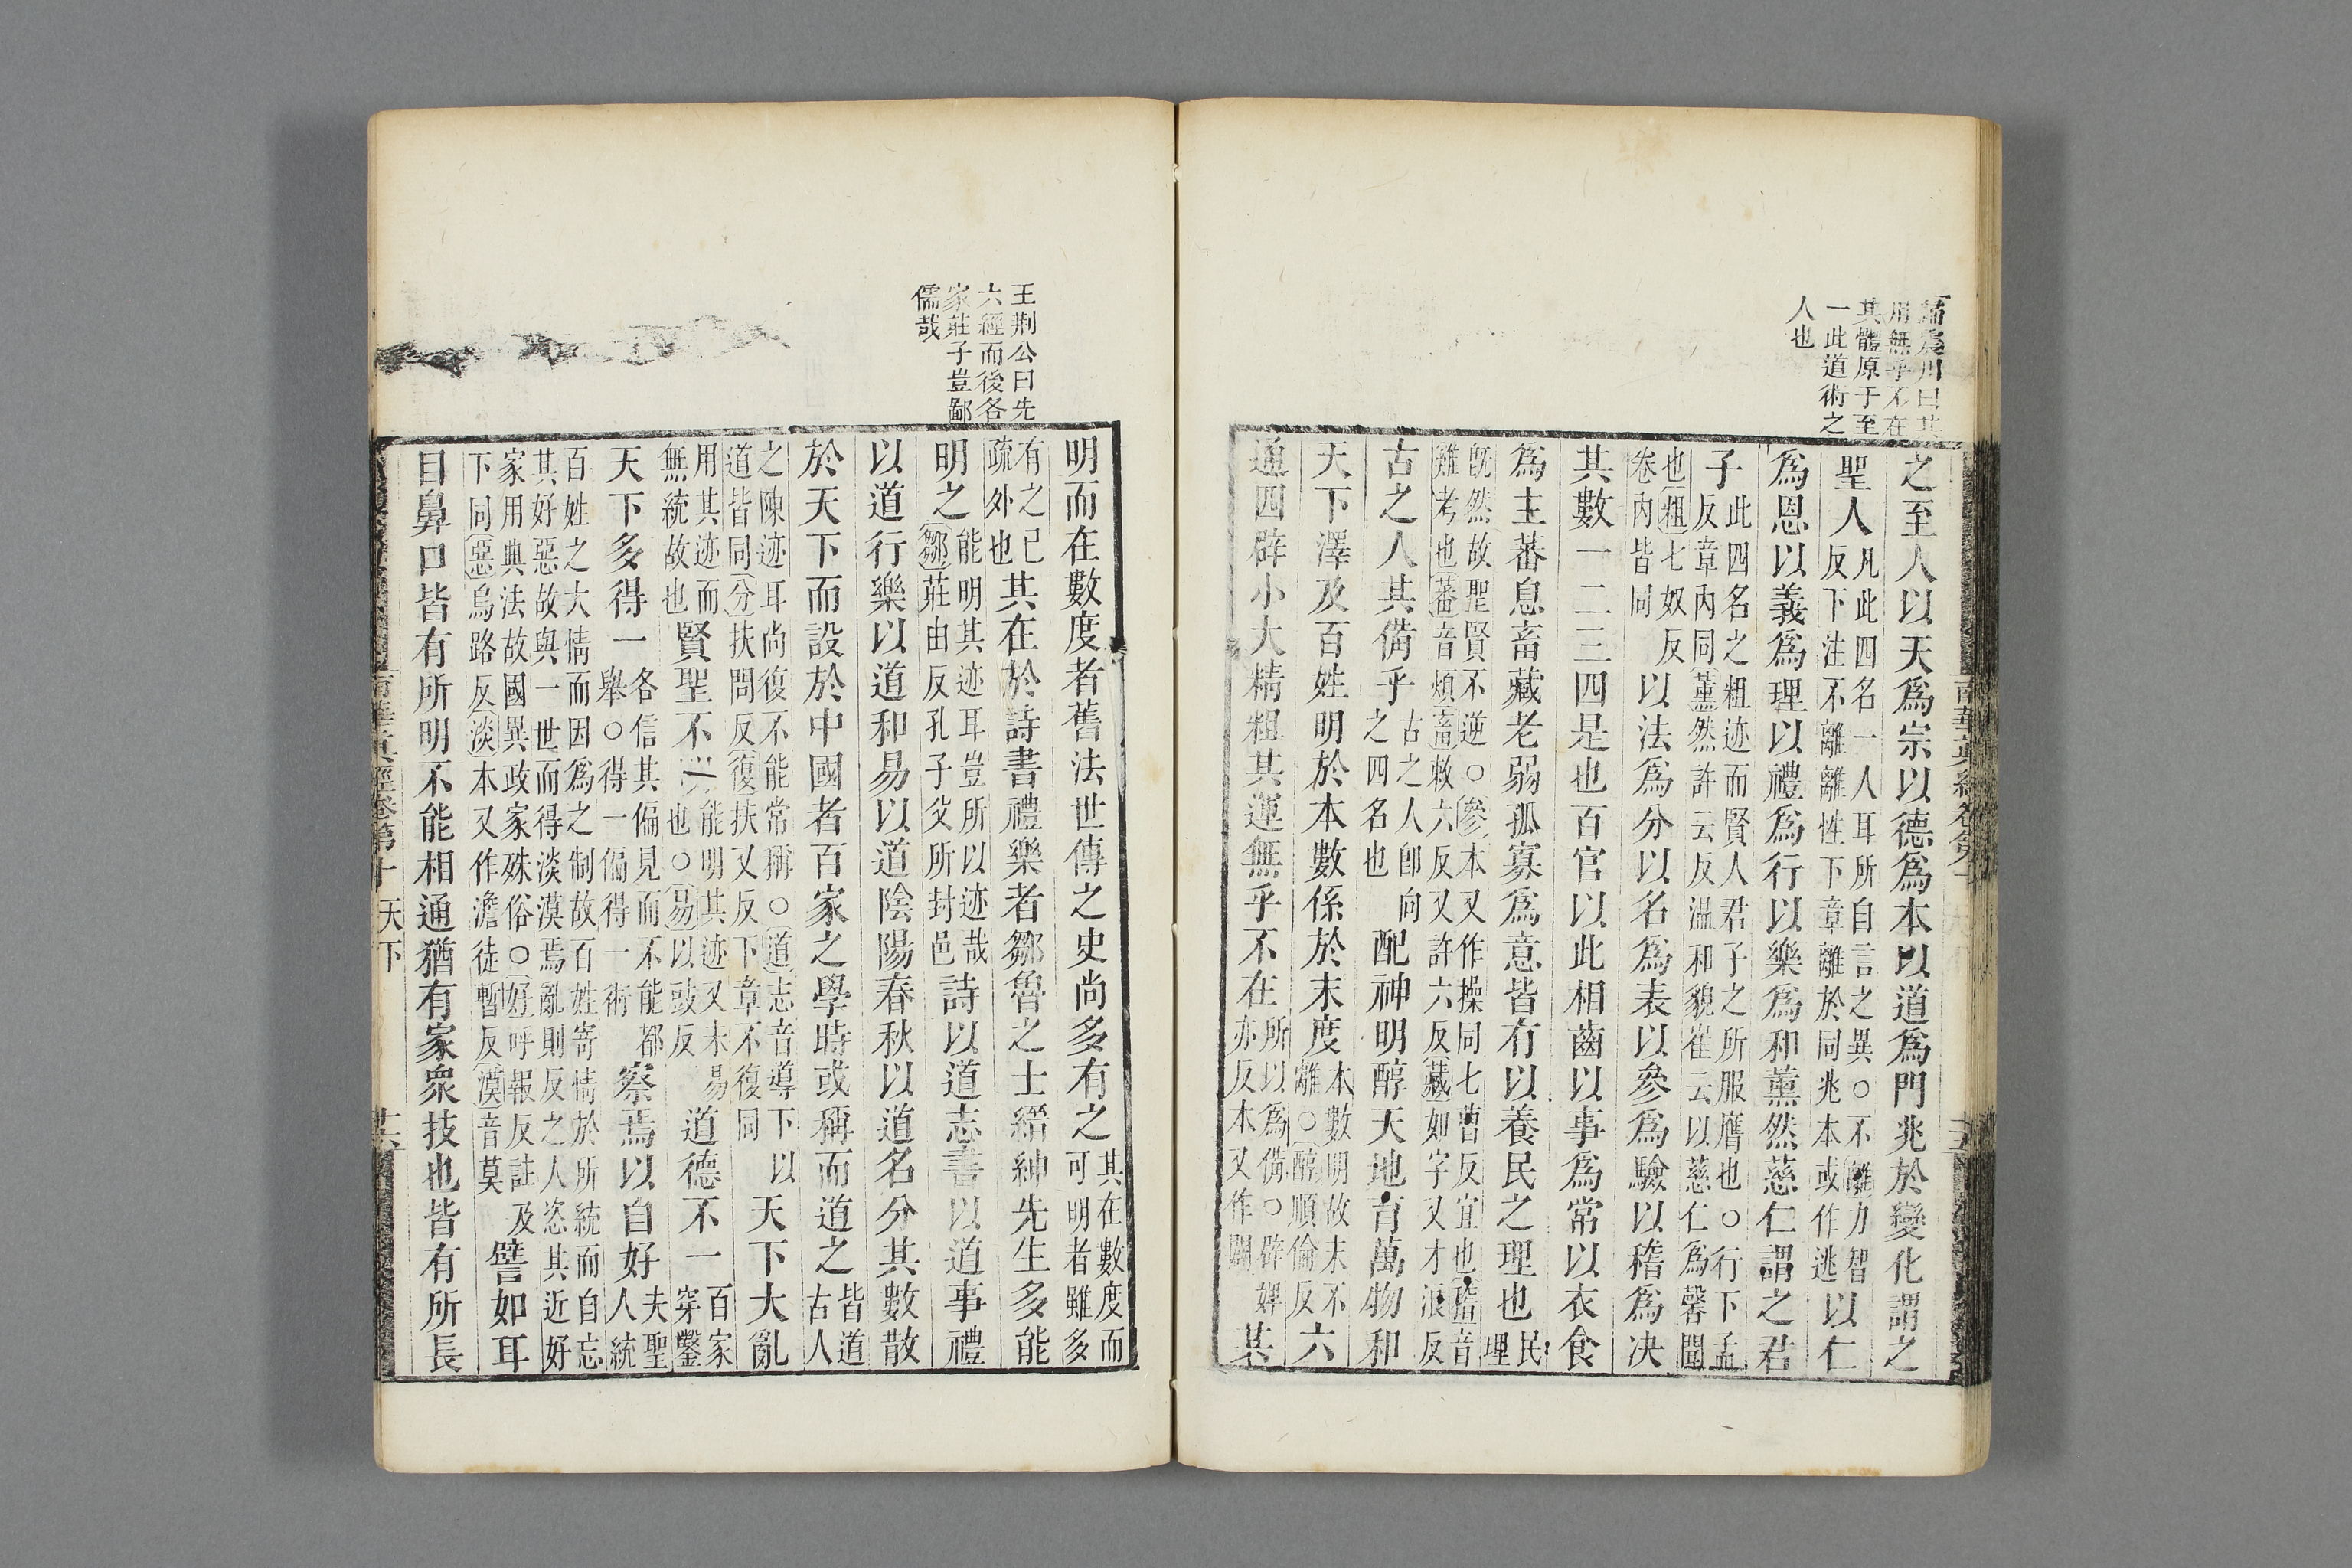 歸震川曰其
用無乎不在
其體原于至
一此道術之
人也
南華真經卷第十
之至人以天爲宗以德爲本以道爲門兆於變化謂之
聖人凡此四名一人耳所自言之異○不離力智反下注不離離性下章離於同兆本或作逃以仁
爲恩以義爲理以禮爲行以樂爲和薰然慈仁謂之君
子此四名之粗迹而賢人君子之所服膺也○行下孟反章內同薰然許云反溫和貌崔云以慈仁爲馨聞
也粗七奴反卷內皆同以法爲分以名爲表以參爲驗以稽爲决
其數一二三四是也百官以此相齒以事爲常以衣食
爲主蕃息畜藏老弱孤寡爲意皆有以養民之理也民理
旣然故聖賢不逆○參本又作操同七曹反宜也稽音雞考也蕃音煩畜敕六反又許六反藏如字又才浪反
古之人其備乎古之人卽向之四名也配神明醇天地育萬物和
天下澤及百姓明於本數係於末度本數明故末不離○醇順倫反六
通四辟小大精粗其運無乎不在所以爲備○辟婢亦反本又作闢其
王荆公曰先
六經而後各
家莊子豈鄙
儒哉
明而在數度者舊法世傳之史尚多有之其在數度而可明者雖多
有之已疏外也其在於詩書禮樂者鄒魯之士縉紳先生多能
明之能明其迹耳豈所以迹哉鄒莊由反孔子父所封邑詩以道志書以道事禮
以道行樂以道和易以道陰陽春秋以道名分其數散
於天下而設於中國者百家之學時或稱而道之皆道古人
之陳迹耳尚復不能常稱○道志音導下以道皆同分扶問反復扶又反下章不復同天下大亂
用其迹而無統故也賢聖不明能明其迹又未易也○易以豉反道德不一百家穿鑿
天下多得一各信其偏見而不能都舉○得一偏得一術察焉以自好夫聖人統
百姓之大情而因爲之制故百姓寄情於所統而自忘其好惡故與一世而得淡漠焉亂則反之人恣其近好
家用典法故國異政家殊俗○好呼報反註及下同惡烏路反淡本又作澹徒暫反漠音莫譬如耳
目鼻口皆有所明不能相通猶有家衆技也皆有所長
南華真經卷第十 天下 廿六